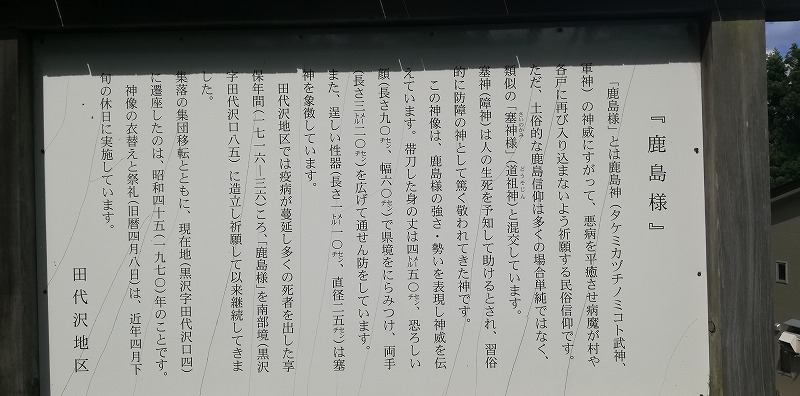 『鹿島様』
「鹿島様」とは鹿島神（タケミカヅチノミコト武神、
軍神）の神威にすがって、悪病を平癒させ病魔が村や
各戸に再び入り込まないよう祈願する民俗信仰です。
ただ、土俗的な鹿島信仰は多くの場合単純ではなく、
類似の「塞神様」（道祖神）と混交しています。
さいのかみ
どうそじん
塞神（障神）は人の生死を予知して助けるとされ、習俗
的に防障の神として篤く敬われてきた神です。
この神像は、鹿島様の強さ・勢いを表現し神威を伝
えています。帯刀した身の丈は四㍍五〇㌢、恐ろしい
顔（長さ九〇㌢、幅六〇㌢）で県境をにらみつけ、両手
（長さ三㍍二〇㌢）を広げて通せん防をしています。
また、逞しい性器（長さ一㍍一〇㌢、直径二五㌢）は塞
神を象徴しています。
田代沢地区では疫病が蔓延し多くの死者を出した享
保年間（一七一六―三六）ころ、「鹿島様」を南部境（黒沢
字田代沢口八五）に造立し祈願して以来継続してきま
した。
集落の集団移転とともに、現在地（黒沢字田代沢口四）
に遷座したのは、昭和四十五（一九七〇）年のことです。
神像の衣替えと祭礼（旧暦四月八日）は、近年四月下
旬の休日に実施しています。
田代沢地区